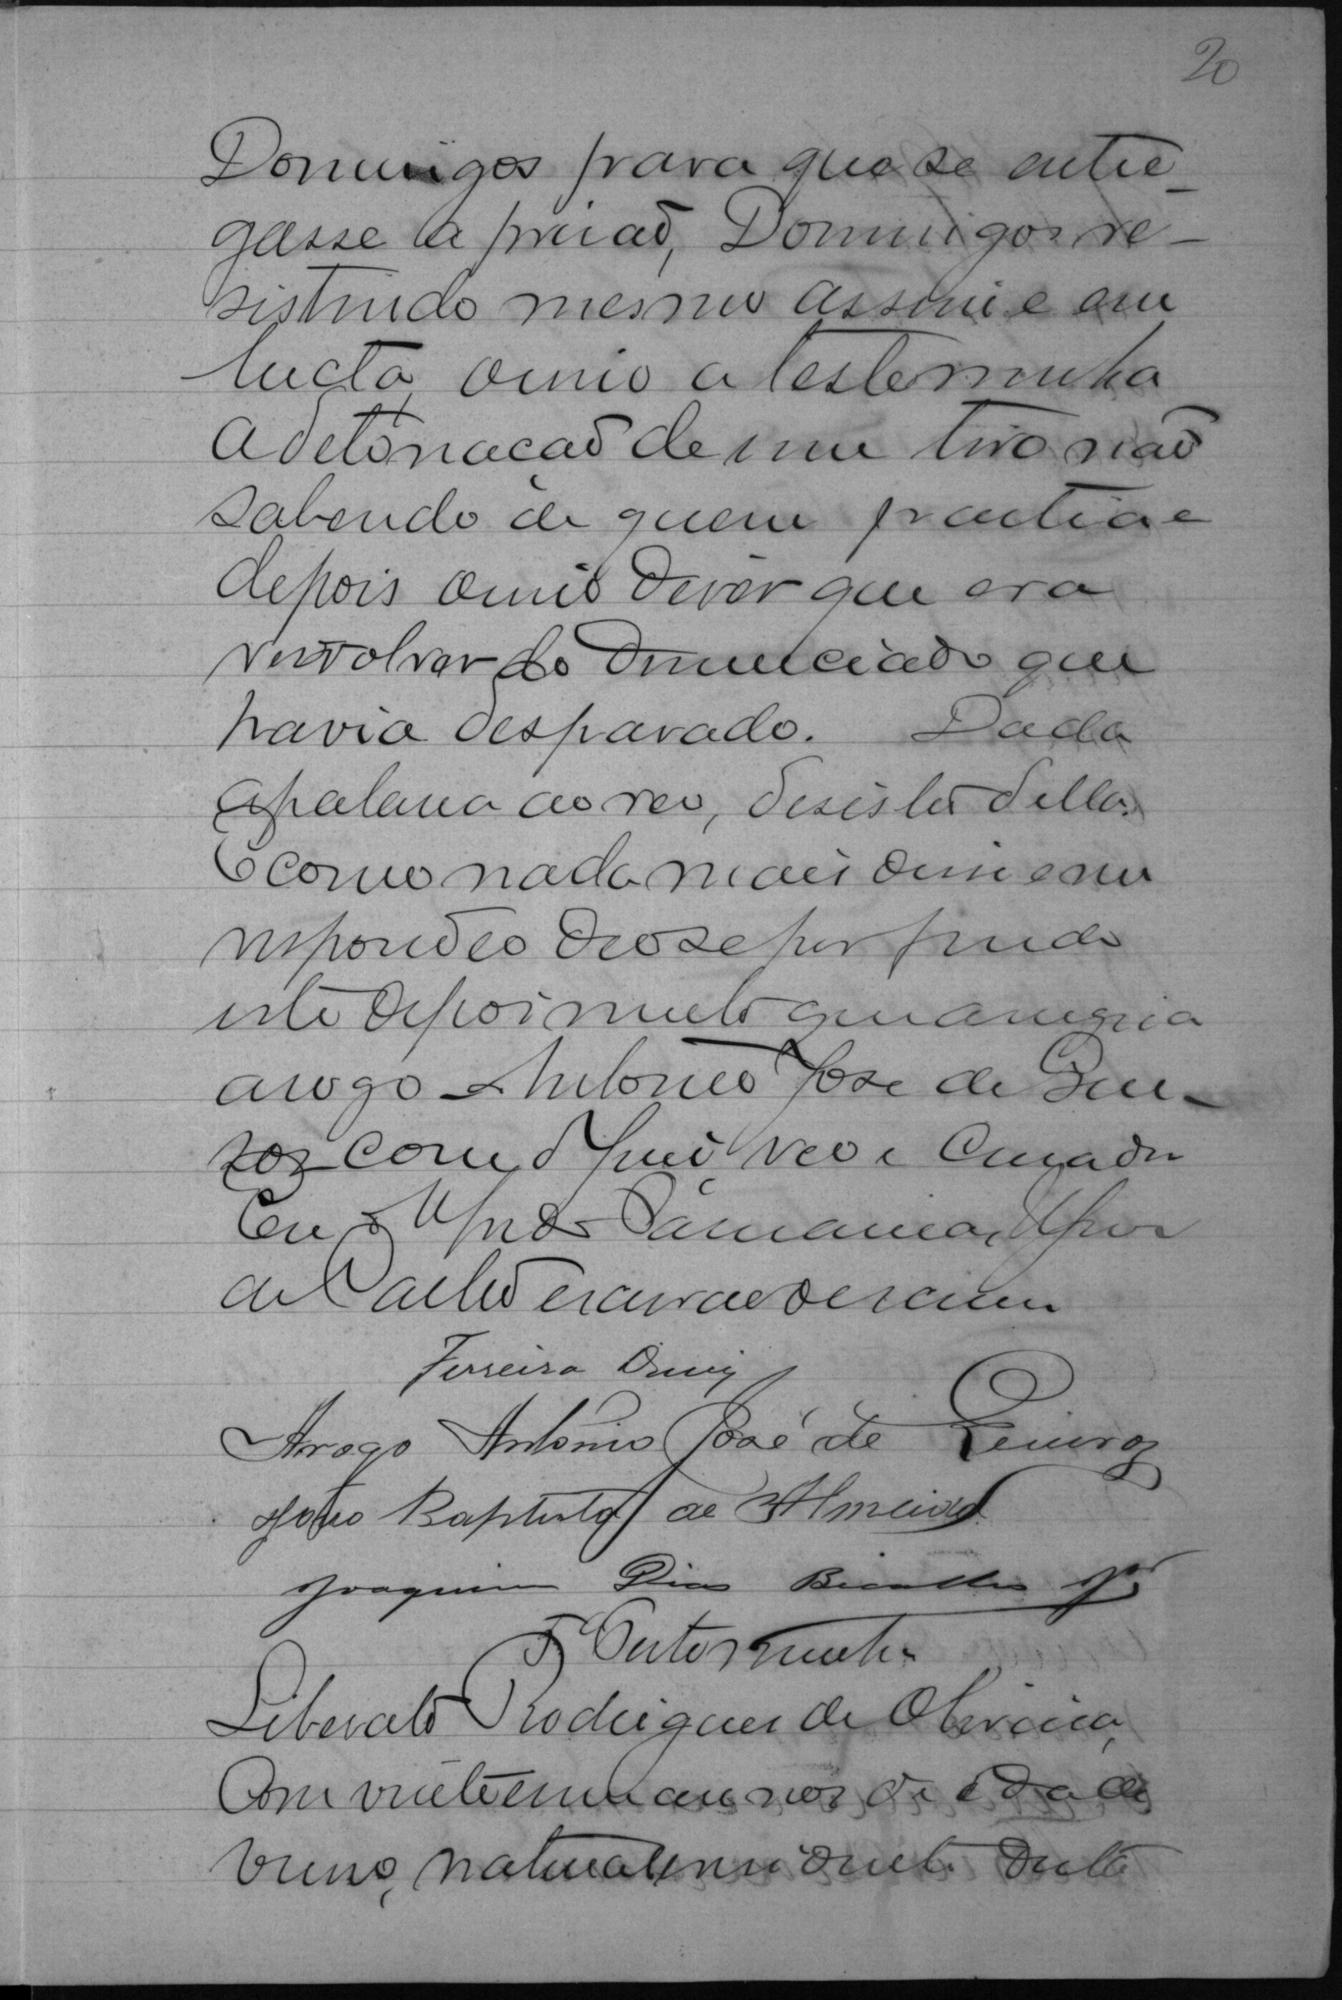 20
Domingos para que se entre-
gasse a prisaõ, Domingos re-
sistindo mesmo assim e em
lucta, ouvio a testemunha
a detonaçaõ de um tiro naõ
sabendo de quem partia e
depois ouvio diser que era
revolver do denunciado que
havia desparado. Dada
a palavra ao reo, desistio della.
E como nada mais disse nem
respondeo deo-se por findo
este depoimento que assigna
arogo Antonio José de Quei-
roz com o Juis reo e Curador
Eu
de Castro escrivaõ escrevi
Ferreira Diniz
Arogo Antonio José de Queiroz
João Baptista de Almeida
Joaquim Dias Bicalho Jor
5ª Testemunha
Liberato Rodrigues de Oliveira,
com vinte e um annos de edade
natural e residente desta